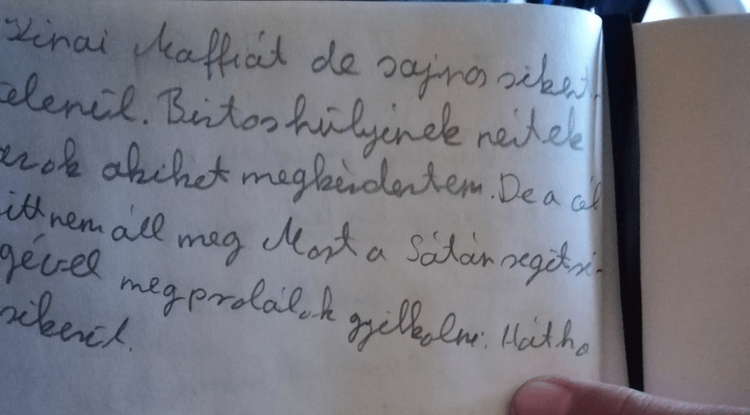 Kinai Maffiát de sajnos sikert
elenűl. Biztos hülyének néztek
azok akiket megkérdeztem. De a cél
itt nem áll meg Most a Sátán segítsé-
gével megprolálok gyilkolni. Hátha
sikerül.